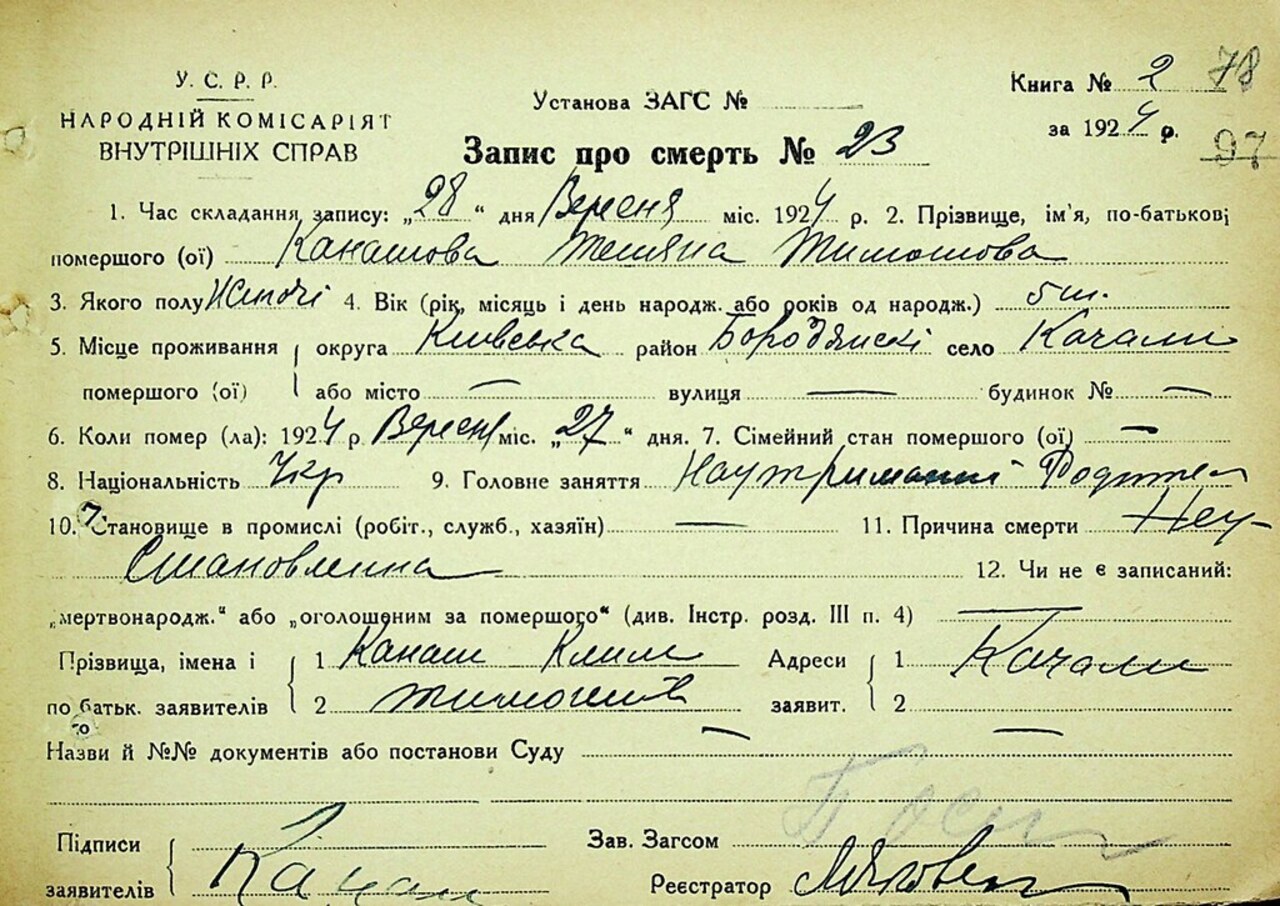 У. С. Р. Р.
НАРОДНІЙ КОМІСАРІЯТ
ВНУТРІШНІХ СПРАВ
Установа ЗАГС №
Книга № 2 78
за 1924 р.
97
Запис про смерть № 23
1. Час складання запису: „28“ дня Вересня міс. 1924 р. 2. Прізвище, ім'я, по-батькові
помершого (ої) Канашова Тетяна Тимошова
3. Якого полу Жіночі 4. Вік (рік, місяць і день народж. або років од народж.) 5 м.
5. Місце проживання округа Київська район Бородянскі село Качали
помершого (ої) або місто — вулиця — будинок № —
6. Коли помер (ла): 1924 р. Вересня міс. „27“ дня. 7. Сімейний стан помершого (ої) —
8. Національність Укр 9. Головне заняття На утриманні Родител
10. Становище в промислі (робіт., служб., хазяїн) — 11. Причина смерти Неу-
становленна 12. Чи не є записаний:
„мертвонародж.“ або „оголошеним за помершого“ (див. Інстр. розд. III п. 4) —
Прізвища, імена і 1 Канаш Клим Адреси 1 Качали
по батьк. заявителів 2 Тимошів заявит. 2
Назви й №№ документів або постанови Суду — —
Підписи Зав. Загсом
заявителів Канаш Реєстратор